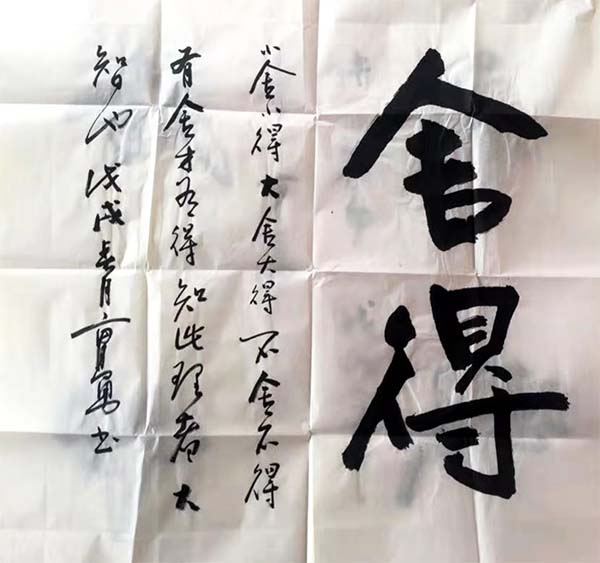 舍得
小舍小得大舍大得不舍不得
有舍才有得知此理者大
智也戊戌春月
书